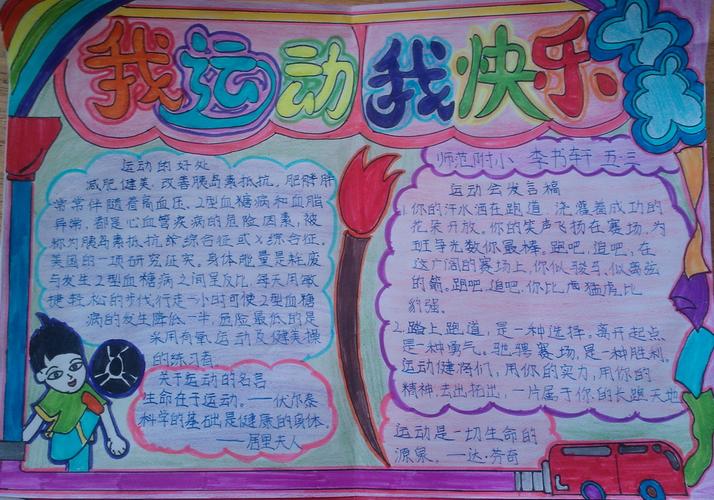 我运动我快乐
运动的好处
减肥健美,改善胰岛素抵抗,肥胖
常常伴随着高血压、2型血糖病和血脂
异常,都是心血管疾病的危险因素,被
称为胰岛素抵抗综合征或X综合征.
美国的一项研究证实,身体能量是耗废
与发生2型血糖病之间呈反比,每天用敏
捷轻松的步伐行走一小时可使2型血糖
病的发生降低一半,危险最低的是
采用有氧运动及健美操
的练习者.
关于运动的名言
生命在于运动。——伏尔泰
科学的基础是健康的身体.
——居里夫人
师范附小 李书轩 五.三
运动会发言稿
1.你的汗水洒在跑道,浇灌着成功的
花朵开放。你的笑声飞扬在赛场,为
班争光数你最棒。跑吧,追吧,在
这广阔的赛场上,你似骏马,似离弦
的箭。跑吧,追吧,你比虎猛虎比
豹强。
2.踏上跑道,是一种选择,离开起点
是一种勇气。驰骋赛场,是一种胜利。
运动健将们,用你的实力,用你的
精神,去出拓出,一片属于你的长跑天地
运动是一切生命的
源泉。—达·芬奇